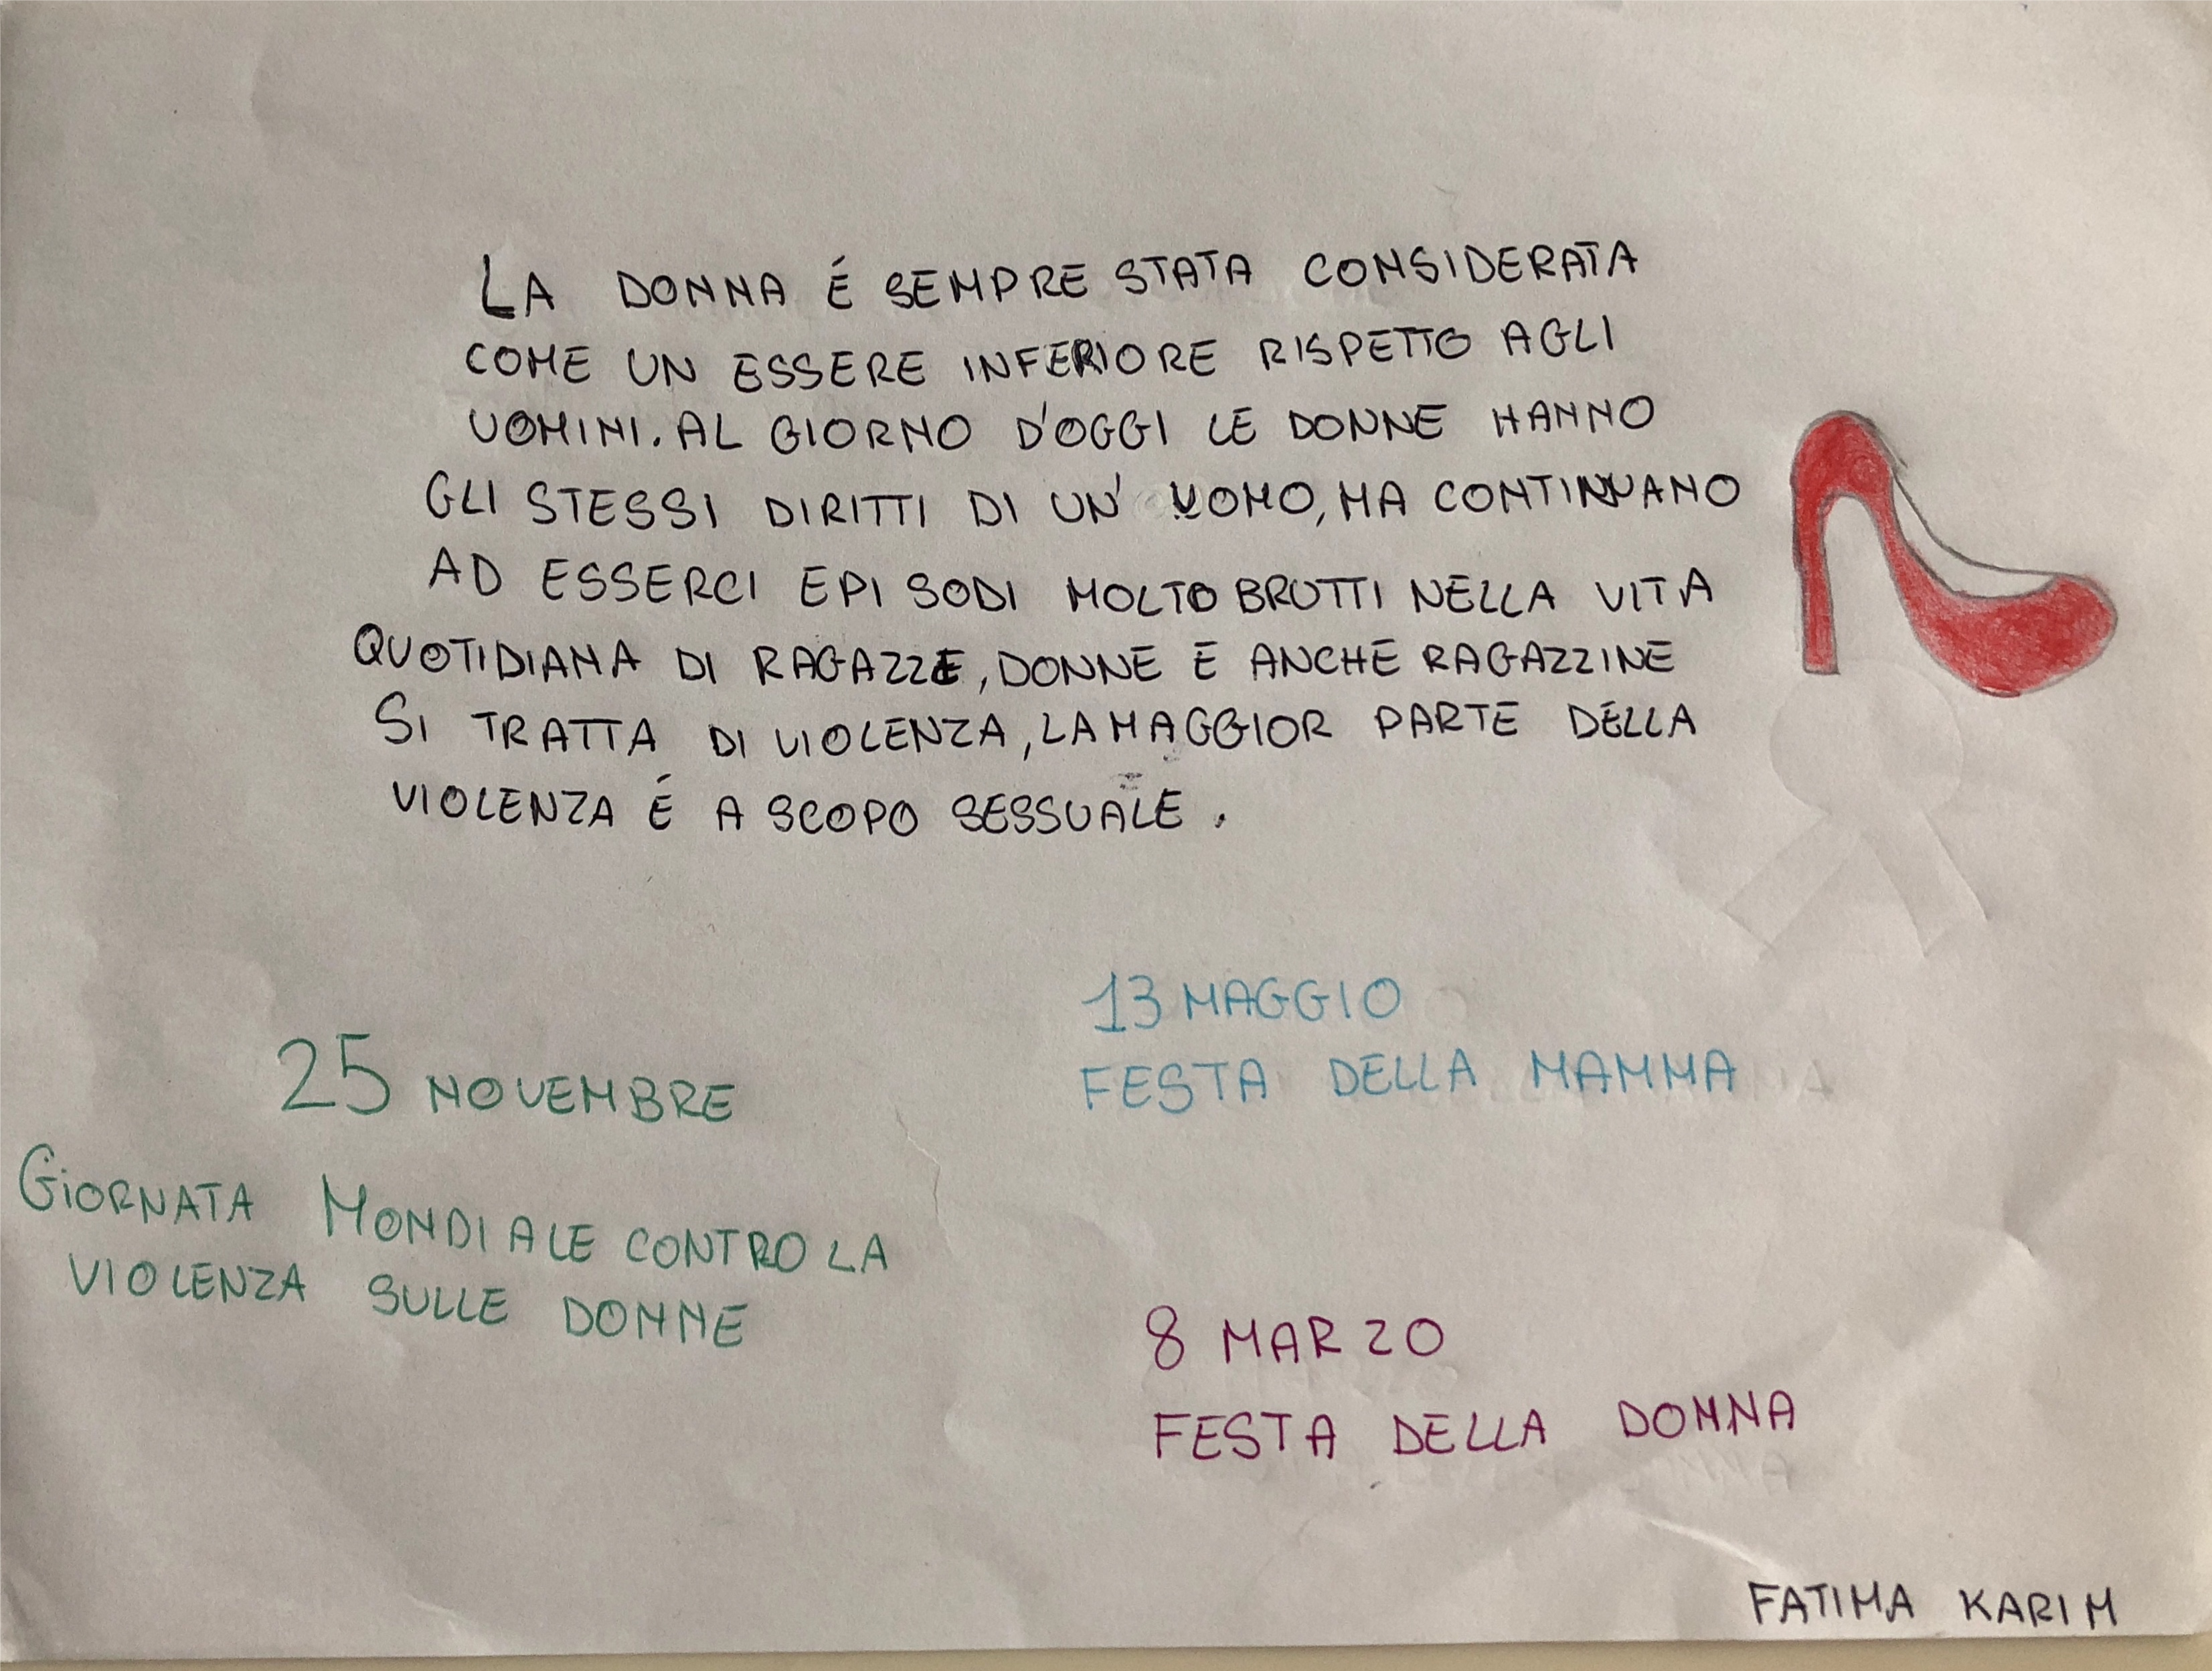 LA DONNA É SEMPRE STATA CONSIDERATA
COME UN ESSERE INFERIORE RISPETTO AGLI
UOMINI. AL GIORNO D'OGGI LE DONNE HANNO
GLI STESSI DIRITTI DI UN' UOMO, MA CONTINUANO
AD ESSERCI EPISODI MOLTO BRUTTI NELLA VITA
QUOTIDIANA DI RAGAZZE, DONNE E ANCHE RAGAZZINE
SI TRATTA DI VIOLENZA, LA MAGGIOR PARTE DELLA
VIOLENZA É A SCOPO SESSUALE.
25 NOVEMBRE
GIORNATA MONDIALE CONTRO LA
VIOLENZA SULLE DONNE
13 MAGGIO
FESTA DELLA MAMMA
8 MARZO
FESTA DELLA DONNA
FATIMA KARIM